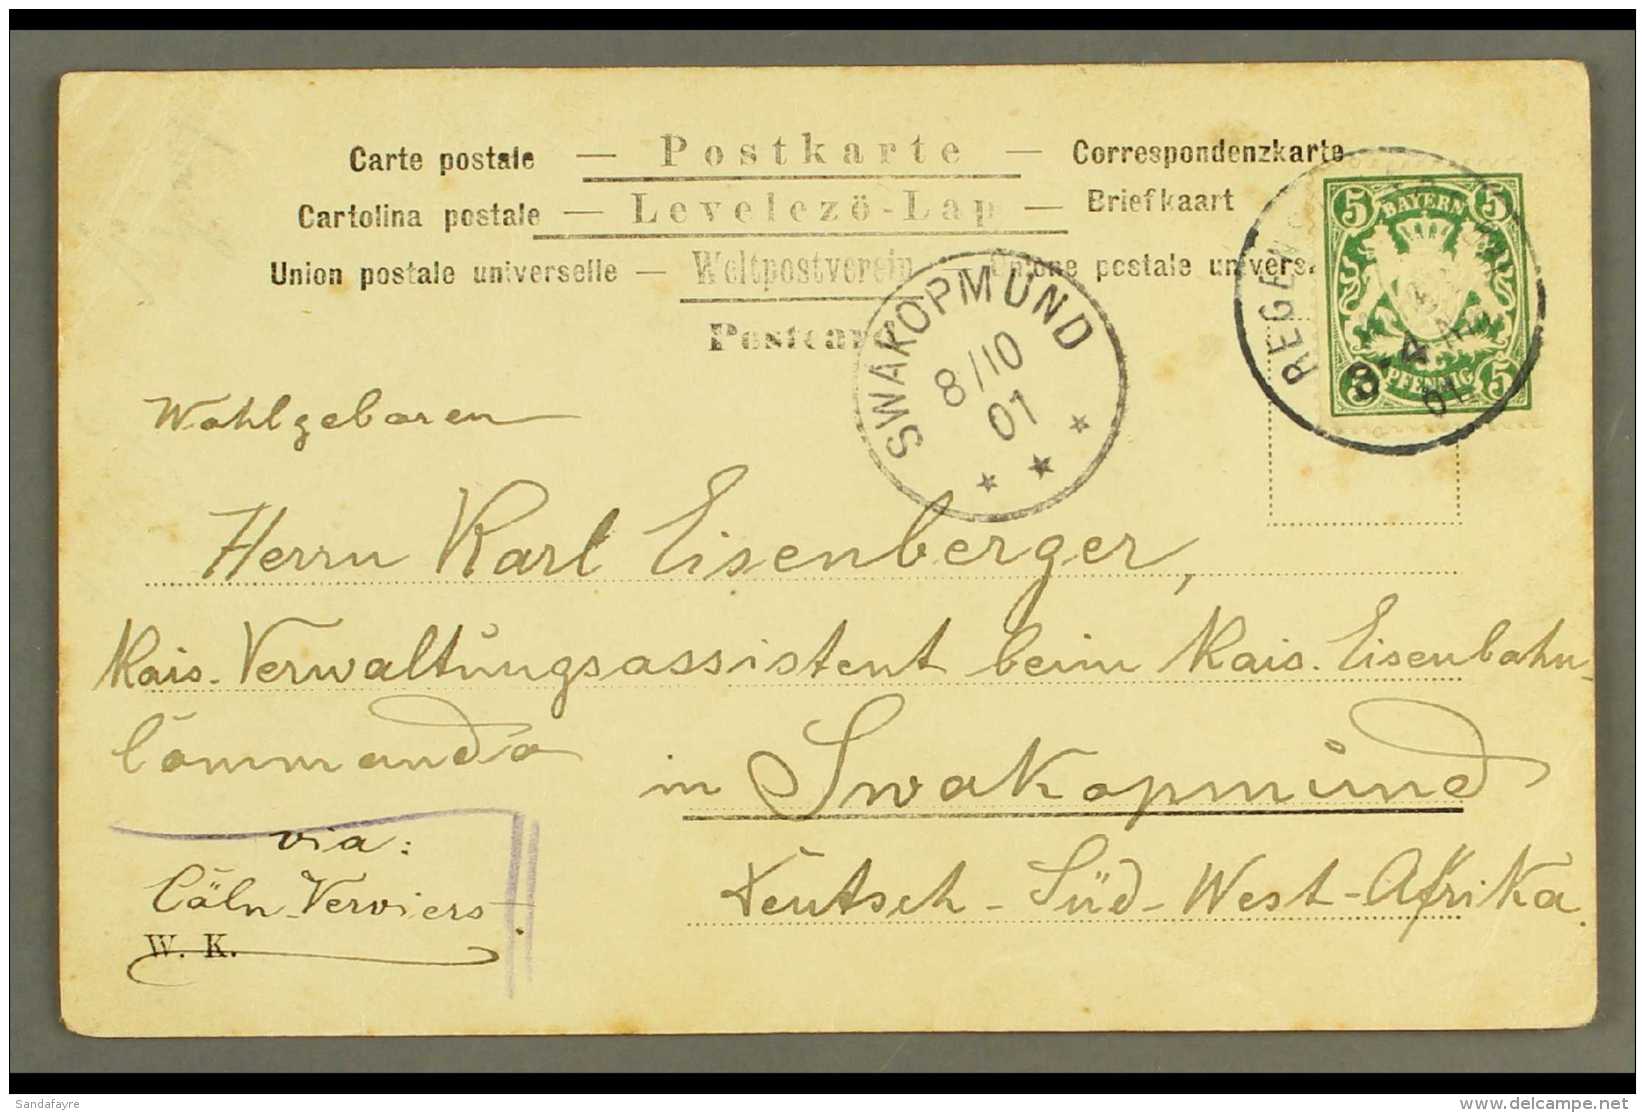 Carte postale — Postkarte — Correspondenzkarte
Cartolina postale — Levelező-Lap — Briefkaart
Union postale universelle — Weltpostverein — Unione postale univers
Postcard
5 BAYERN 5
5 PFENNIG 5
SWAKOPMUND
8/10
01
Wohlgeboren
Herrn Karl Eisenberger,
Kais. Verwaltungsassistent beim Kais. Eisenbahn-
Commando
in Swakopmund
Deutsch-Süd-West-Afrika.
via:
Cöln-Verviers.
W. K.
Sandafayre
delcampe.net